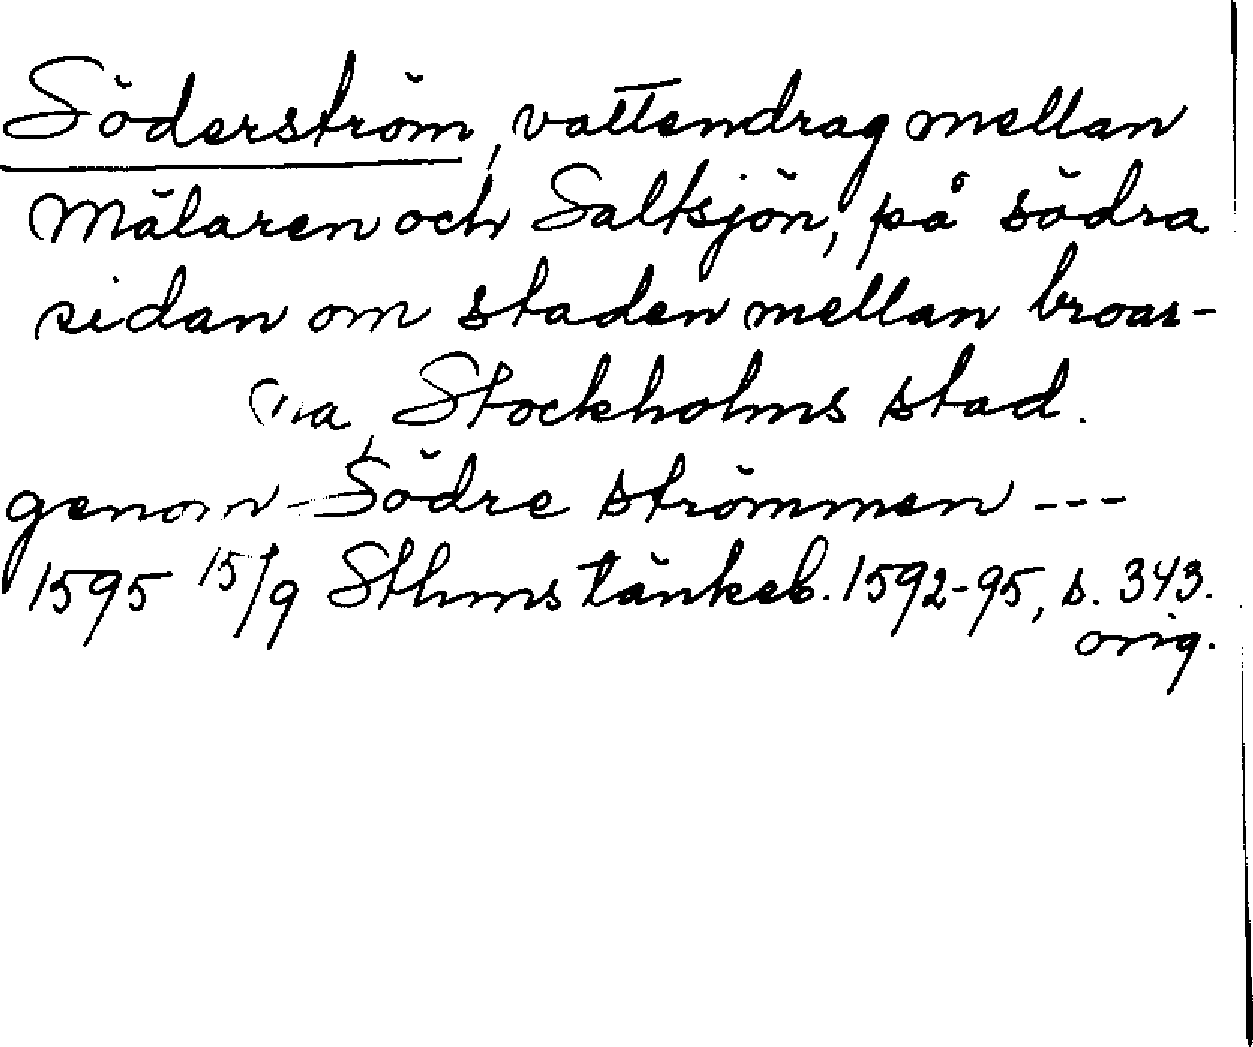 Söderström, vattendrag mellan
Mälaren och Saltsjön, på södra
sidan om staden mellan broar-
na, Stockholms stad.
genom Södre strömmen ---
1595 15/9 Sthms tänkeb. 1592-95, s. 343.
orig.